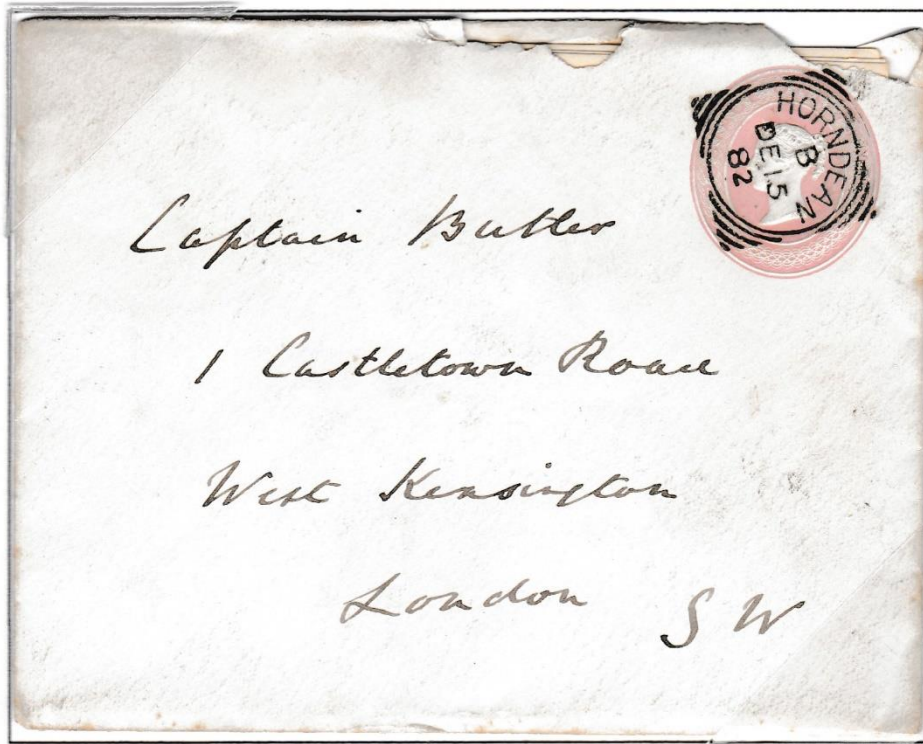 HORNDEAN
B
DE 15
82
Captain Butler
1 Castletown Road
West Kensington
London S W